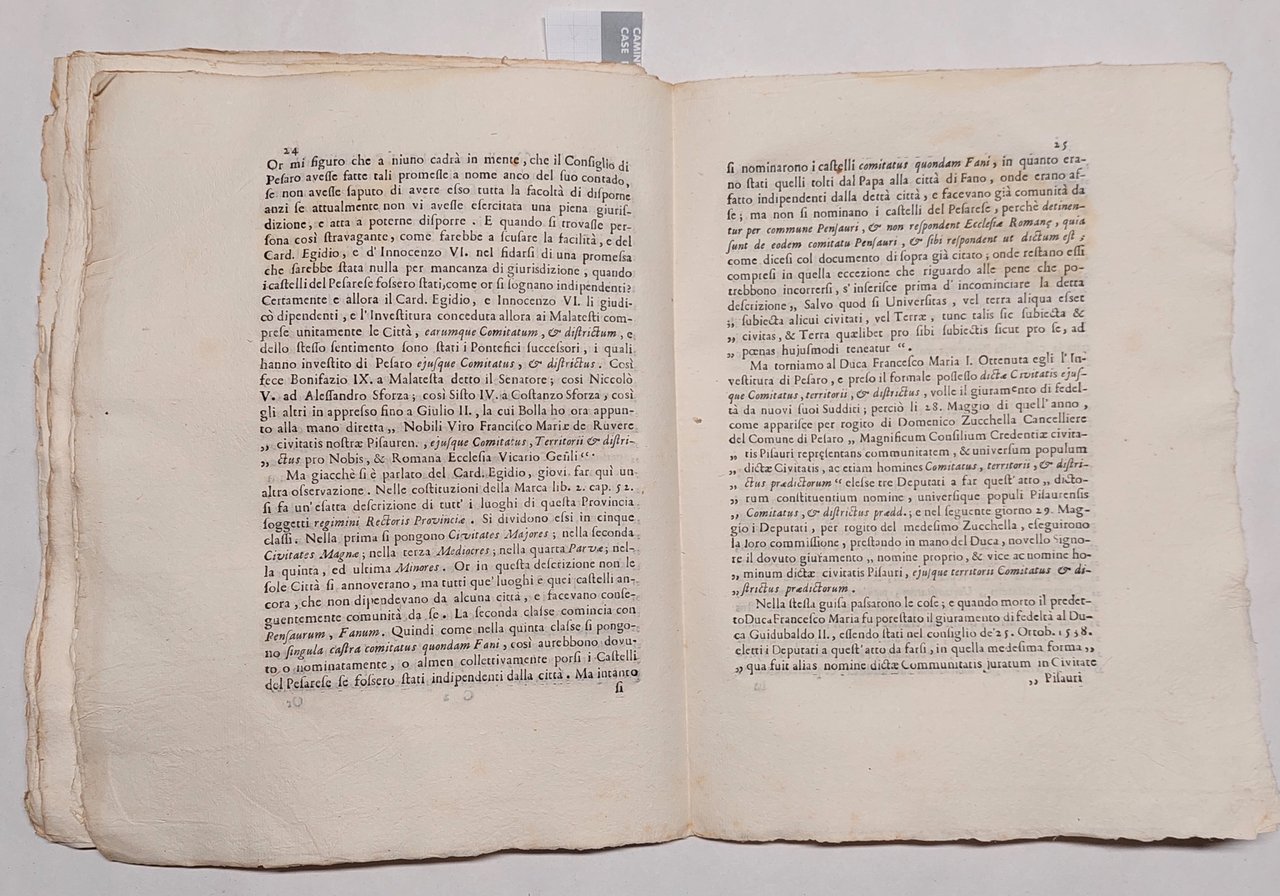 CAMIN
CASE
24
Or mi figuro che a niuno cadrà in mente, che il Consiglio di
Pesaro avesse fatte tali promesse a nome anco del suo contado,
se non avesse saputo di avere esso tutta la facoltà di disporne
anzi se attualmente non vi avesse esercitata una piena giuris-
dizione, e atta a poterne disporre. E quando si trovasse per-
sona così stravagante, come farebbe a scusare la facilità, e del
Card. Egidio, e d'Innocenzo VI. nel fidarsi di una promessa
che sarebbe stata nulla per mancanza di giurisdizione, quando
i castelli del Pesarese fossero stati, come or si sognano indipendenti?
Certamente e allora il Card. Egidio, e Innocenzo VI. li giudi-
cò dipendenti, e l'Investitura conceduta allora ai Malatesti com-
prese unitamente le Città, earumque Comitatum, & districtum, e
dello stesso sentimento sono stati i Pontefici successori, i quali
hanno investito di Pesaro ejusque Comitatus, & districtus. Così
fece Bonifazio IX. a Malatesta detto il Senatore; così Niccolò
V. ad Alessandro Sforza; così Sisto IV. a Costanzo Sforza, così
gli altri in appresso fino a Giulio II., la cui Bolla ho ora appun-
to alla mano diretta ,, Nobili Viro Francisco Mariæ de Ruvere
,, civitatis nostræ Pisauren., ejusque Comitatus, Territorii & distri-
,, ctus pro Nobis, & Romana Ecclesia Vicario Gen̄li “.
Ma giacchè si è parlato del Card. Egidio, giovi far quì un'
altra osservazione. Nelle costituzioni della Marca lib. 2. cap. 52.
si fa un'esatta descrizione di tutt' i luoghi di questa Provincia
soggetti regimini Rectoris Provinciæ. Si dividono essi in cinque
classi. Nella prima si pongono Civitates Majores; nella seconda
Civitates Magnæ; nella terza Mediocres; nella quarta Parvæ; nel-
la quinta, ed ultima Minores. Or in questa descrizione non le
sole Città si annoverano, ma tutti que' luoghi e quei castelli an-
cora, che non dipendevano da alcuna città, e facevano conse-
guentemente comunità da se. La seconda classe comincia con
Pensaurum, Fanum. Quindi come nella quinta classe si pongo-
no singula castra comitatus quondam Fani, così aurebbono dovu-
to o nominatamente, o almen collettivamente porsi i Castelli
del Pesarese se fossero stati indipendenti dalla città. Ma intanto
si
25
si nominarono i castelli comitatus quondam Fani, in quanto era-
no stati quelli tolti dal Papa alla città di Fano, onde erano af-
fatto indipendenti dalla dettà città, e facevano già comunità da
se; ma non si nominano i castelli del Pesarese, perchè detinen-
tur per commune Pensauri, & non respondent Ecclesiæ Romanę, quia
sunt de eodem comitatu Pensauri, & sibi respondent ut dictum est;
come dicesi col documento di sopra già citato; onde restano essi
compresi in quella eccezione che riguardo alle pene che po-
trebbono incorrersi, s'inserisce prima d'incominciare la detta
descrizione ,, Salvo quod si Universitas, vel terra aliqua esset
,, subiecta alicui civitati, vel Terræ, tunc talis sic subiecta &
,, civitas, & Terra quælibet pro sibi subiectis sicut pro se, ad
,, pœnas hujusmodi teneatur “.
Ma torniamo al Duca Francesco Maria I. Ottenuta egli l'In-
vestitura di Pesaro, e preso il formale possesso dictæ Civitatis ejus-
que Comitatus, territorii, & districtus, volle il giuramento di fedel-
tà da nuovi suoi Sudditi; perciò li 28. Maggio di quell'anno,
come apparisce per rogito di Domenico Zucchella Cancelliere
del Comune di Pesaro ,, Magnificum Consilium Credentiæ civita-
,, tis Pisauri repręsentans communitatem, & universum populum
,, dictæ Civitatis, ac etiam homines Comitatus, territorii, & distri-
,, ctus prædictorum “ elesse tre Deputati a far quest'atto ,, dicto-
,, rum constituentium nomine, universique populi Pisaurensis
,, Comitatus, & districtus prædd.; e nel seguente giorno 29. Mag-
gio i Deputati, per rogito del medesimo Zucchella, eseguirono
la loro commissione, prestando in mano del Duca, novello Signo-
re il dovuto giuramento ,, nomine proprio, & vice ac nomine ho-
,, minum dictæ civitatis Pisauri, ejusque territorii Comitatus & di-
,, strictus prædictorum.
Nella stessa guisa passarono le cose; e quando morto il predet-
to Duca Francesco Maria fu porestato il giuramento di fedeltà al Du-
ca Guidubaldo II., essendo stati nel consiglio de'25. Ottob. 1538.
eletti i Deputati a quest'atto da farsi, in quella medesima forma ,,
,, qua fuit alias nomine dictæ Communitatis juratum in Civitate
,, Pisauri